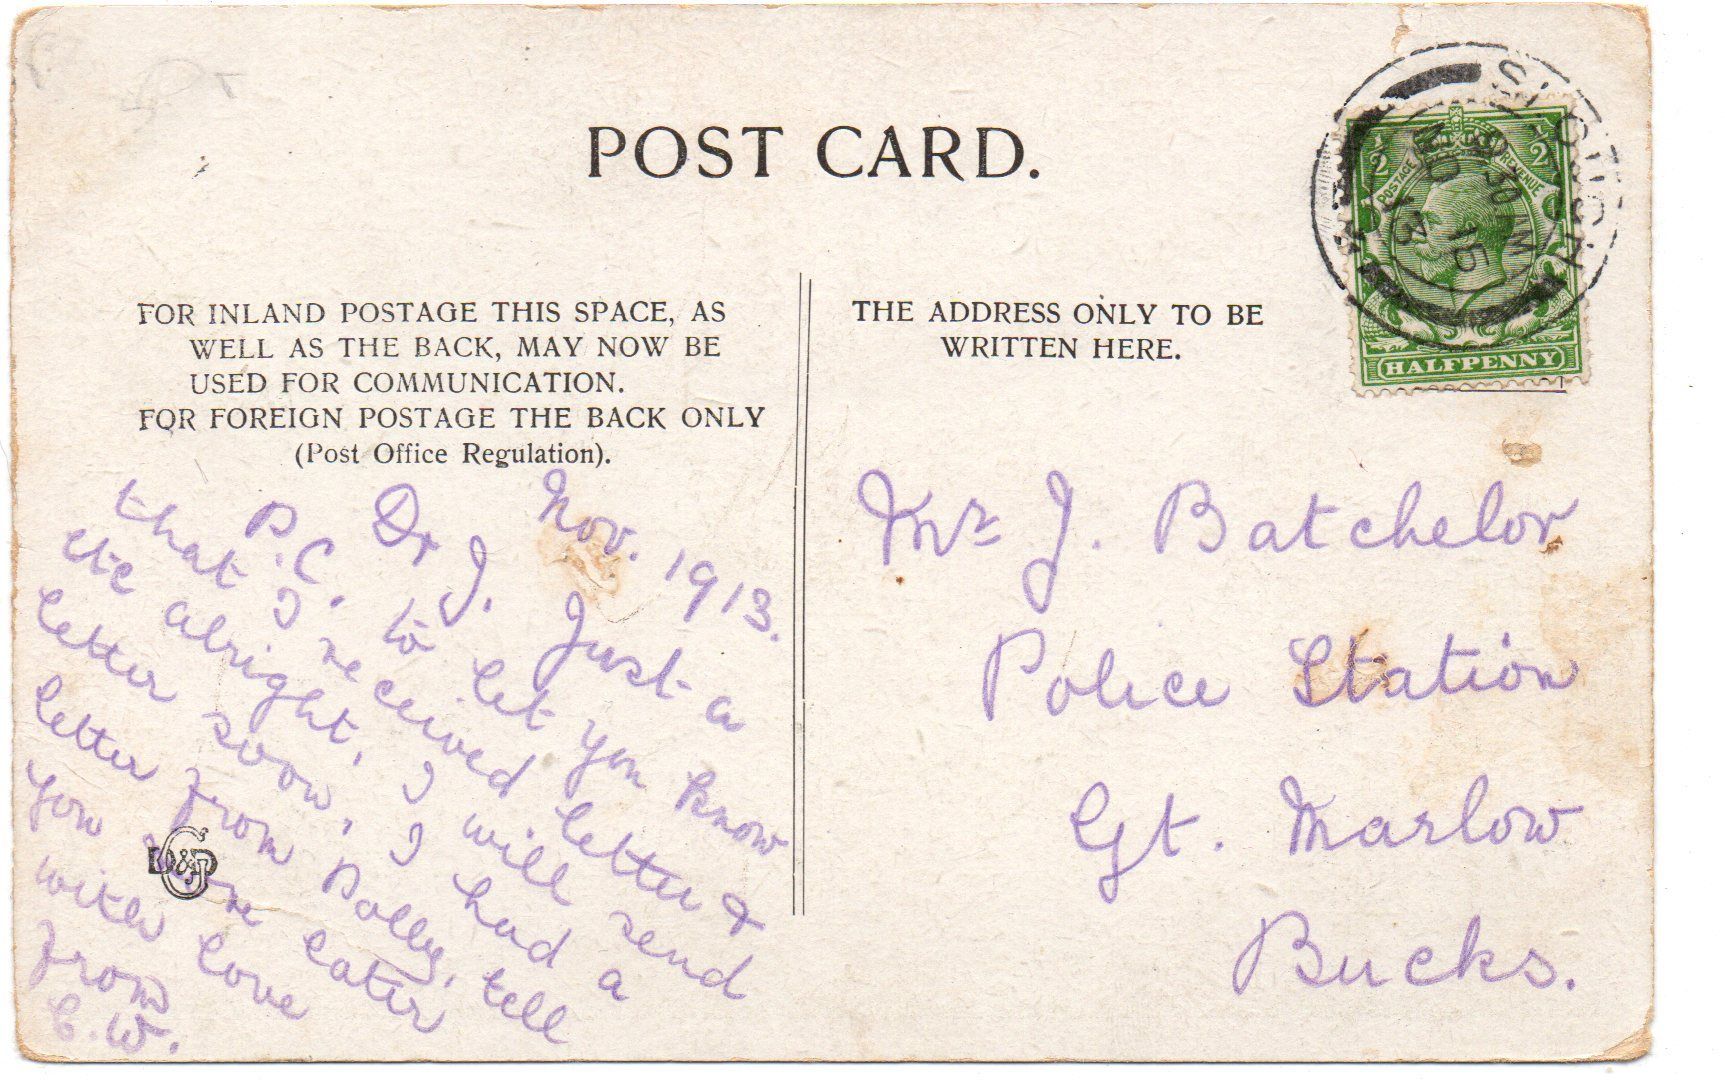 POST CARD.
FOR INLAND POSTAGE THIS SPACE, AS
WELL AS THE BACK, MAY NOW BE
USED FOR COMMUNICATION.
FOR FOREIGN POSTAGE THE BACK ONLY
(Post Office Regulation).
THE ADDRESS ONLY TO BE
WRITTEN HERE.
½ ½
POSTAGE REVENUE
HALFPENNY
SLOUGH
30 AM
NO 15
13
Nov. 1913.
Dr J. Just a
P.C. to let you know
that I received letter &
etc alright, I will send
letter soon, I had a
letter from Dolly, tell
you more later
with love
from
C.W.
D&GP
Mr J. Batchelor
Police Station
Gt. Marlow
Bucks.